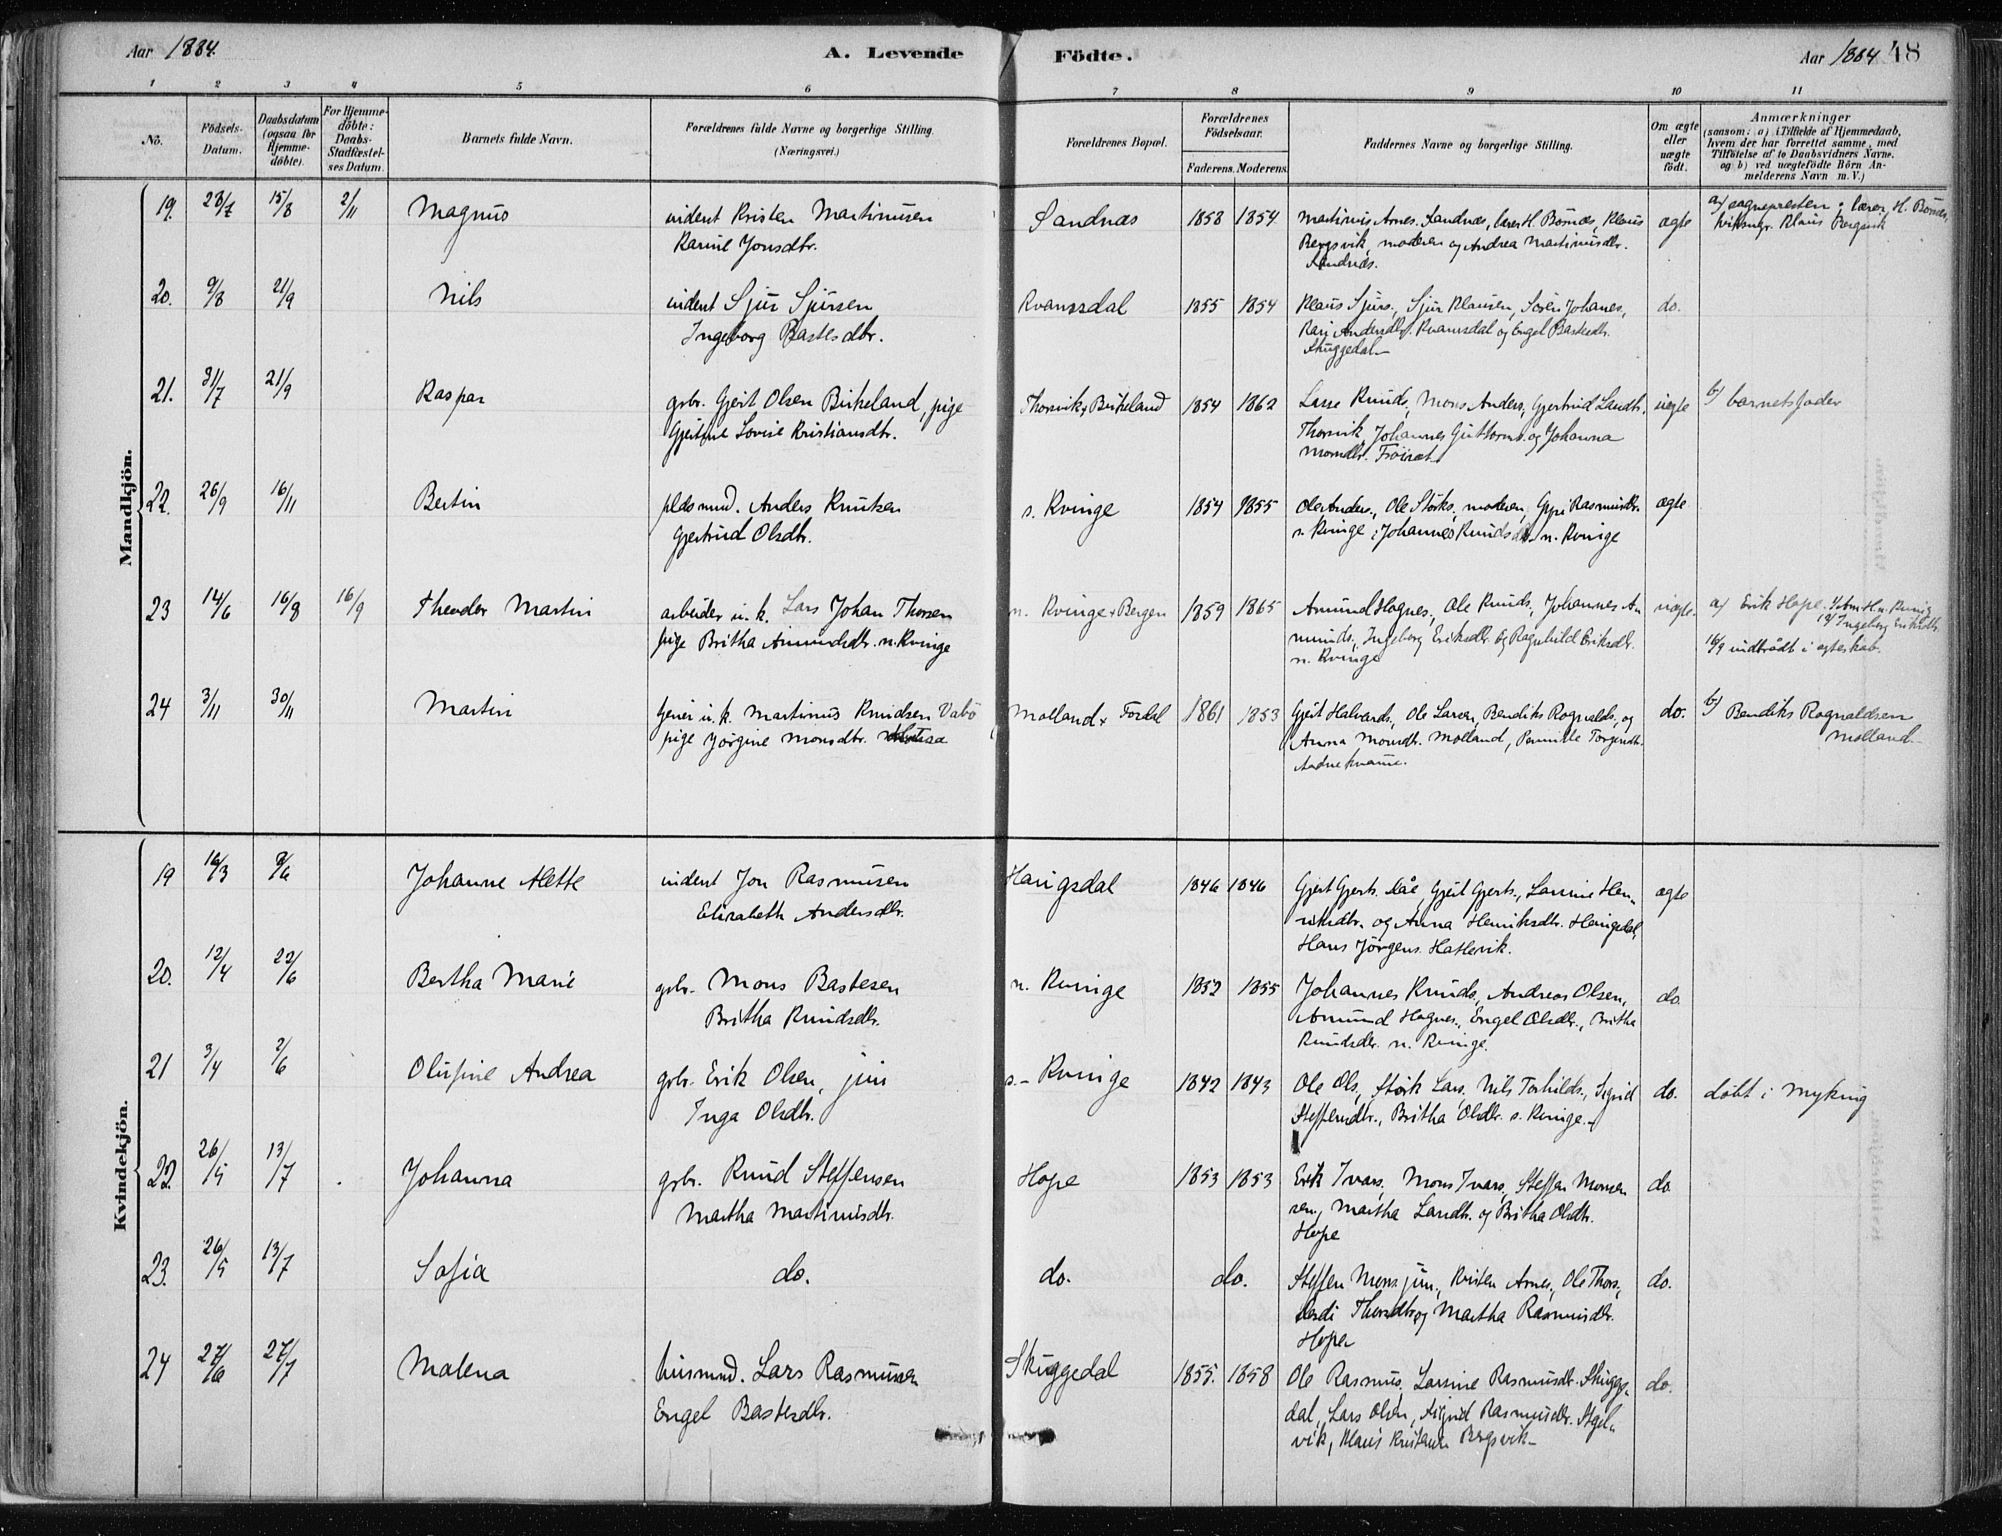 Aar 1884.
A. Levende
Födte.
Aar 1884
48
1 2 3 4 5 6 7 8 9 10 11
No.
Födsels-Datum.
Daabsdatum (ogsaa for Hjemmedöbte).
For Hjemmedöbte: Daabs-Stadfæstelses Datum.
Barnets fulde Navn.
Forældrenes fulde Navne og borgerlige Stilling. (Næringsvei.)
Forældrenes Bopæl.
Forældrenes Födselsaar.
Faderens. Moderens.
Faddernes Navne og borgerlige Stilling.
Om ægte eller uægte födt.
Anmærkninger (saasom: a) i Tilfælde af Hjemmedaab, hvem der har forrettet samme, med Tilföielse af to Daabsvidners Navne, og b) ved uægtefödte Börn Anmelderens Navn m. V.)
Mandkjön.
19. 23/7 15/8 2/11 Magnus
indent Kristen Martinusen
Karine Jonsdtr.
Sandnæs 1858 1854
Martinus Arnes. Sandnæs, lærer H. Bornæs, Klaus
Bergsvik, moderen og Andrea Martinusdtr.
Sandnæs.
ægte
a/ sognepresten; lærer H. Bornæs,
Klaus Bergsvik
20. 9/8 21/9 Nils
indent Sjur Sjursen
Ingeborg Bastesdtr.
Kvamsdal 1855 1854
Klaus Sjurs., Sjur Klausen, Sören Johanes.,
Kari Andersdtr. Kvamsdal og Engel Bastesdtr.
Skuggedal
do.
21. 31/7 21/9 Kaspar
gbr. Gjert Olsen Birkeland, pige
Gjertine Lovise Kristiansdtr.
Thorsvik, Birkeland 1854 1862
Lasse Knuds., Mons Anders., Gjertrud Larsdtr.
Thorsvik, Johannes Guttorms. og Johanna
Monsdtr. Fröiset
uægte
b/ barnets fader
22. 26/9 16/11 Bertin
plds.md. Anders Knutsen
Gjertrud Olsdtr.
s. Kvinge 1854 1855
Ole Anders., Ole Störks., moderen, Guri Rasmusdtr.
s. Kvinge; Johannes Knuds. n. Kvinge
ægte
23 14/6 16/8 16/9 Theodor Martin
arbeider u. k. Lars Johan Thorsen
pige Britha Amundsdtr. n. Kvinge
n. Kvinge + Bergen 1859 1865
Amund Hognes., Ole Knuds., Johannes A-
munds., Ingeborg Eriksdtr. og Ragnhild Eriksdtr.
n. Kvinge
uægte.
a/ Erik Hope.
Ingeborg Eriksdtr.
16/9 indtrådt i ægteskab.
24 3/11 30/11 Martin
tjener u. k. Martinus Knudsen Vabö
pige Jörgine Monsdtr.
Molland + Fordal 1861 1853
Gjert Halvards., Ole Larsen, Bendiks Rognalds., og
Anna Monsdtr. Molland, Pernille Torgersdtr.
Andvekvamme.
do.
b/ Bendiks Rognaldsen
Molland.
Kvindekjön.
19 16/3 8/6 Johanne Alette
indent Jon Rasmusen
Elisabeth Andersdtr.
Haugsdal 1846 1846
Gjert Gjerts. Kåe, Gjert Gjerts., Larsine Hen-
riksdtr. og Anna Henriksdtr. Haugsdal,
Hans Jörgens. Hatlevik.
ægte
20. 12/4 22/6 Bertha Marie
gbr. Mons Bastesen
Britha Knudsdtr.
n. Kvinge 1852 1855
Johannes Knuds., Andreas Olsen,
Amund Hognes., Engel Olsdtr., Britha
Knudsdtr. n. Kvinge.
do.
21 3/4 2/6 Olufine Andrea
gbr. Erik Olsen, jun
Inga Olsdtr.
s. Kvinge 1842 1843
Ole Ols., Störk Lars., Nils Torkilds., Sigrid
Steffensdtr., Britha Olsdtr. s. Kvinge.
do.
döbt i Myking
22. 26/5 13/7 Johanna
gbr. Knud Steffensen
Martha Martinusdtr.
Hope 1853 1853
Erik Ivars., Mons Ivars., Steffen Monsen
sen, Martha Larsdtr. og Britha Olsdtr.
Hope
do.
23. 26/5 13/7 Sofia
do. do. do.
Steffen Mons. jun., Kristen Arnes., Ole Thors.,
Thorsdtr. og Martha Rasmusdtr.
Hope
do.
24 27/6 27/7 Malena
husmd. Lars Rasmussen
Engel Bastesdtr.
Skuggedal 1855. 1858
Ole Rasmus., Larsine Rasmusdtr. Skugge-
dal, Lars Olsen, Sigrid Rasmusdtr.
vik, Klaus Kristensen Bergsvik
do.